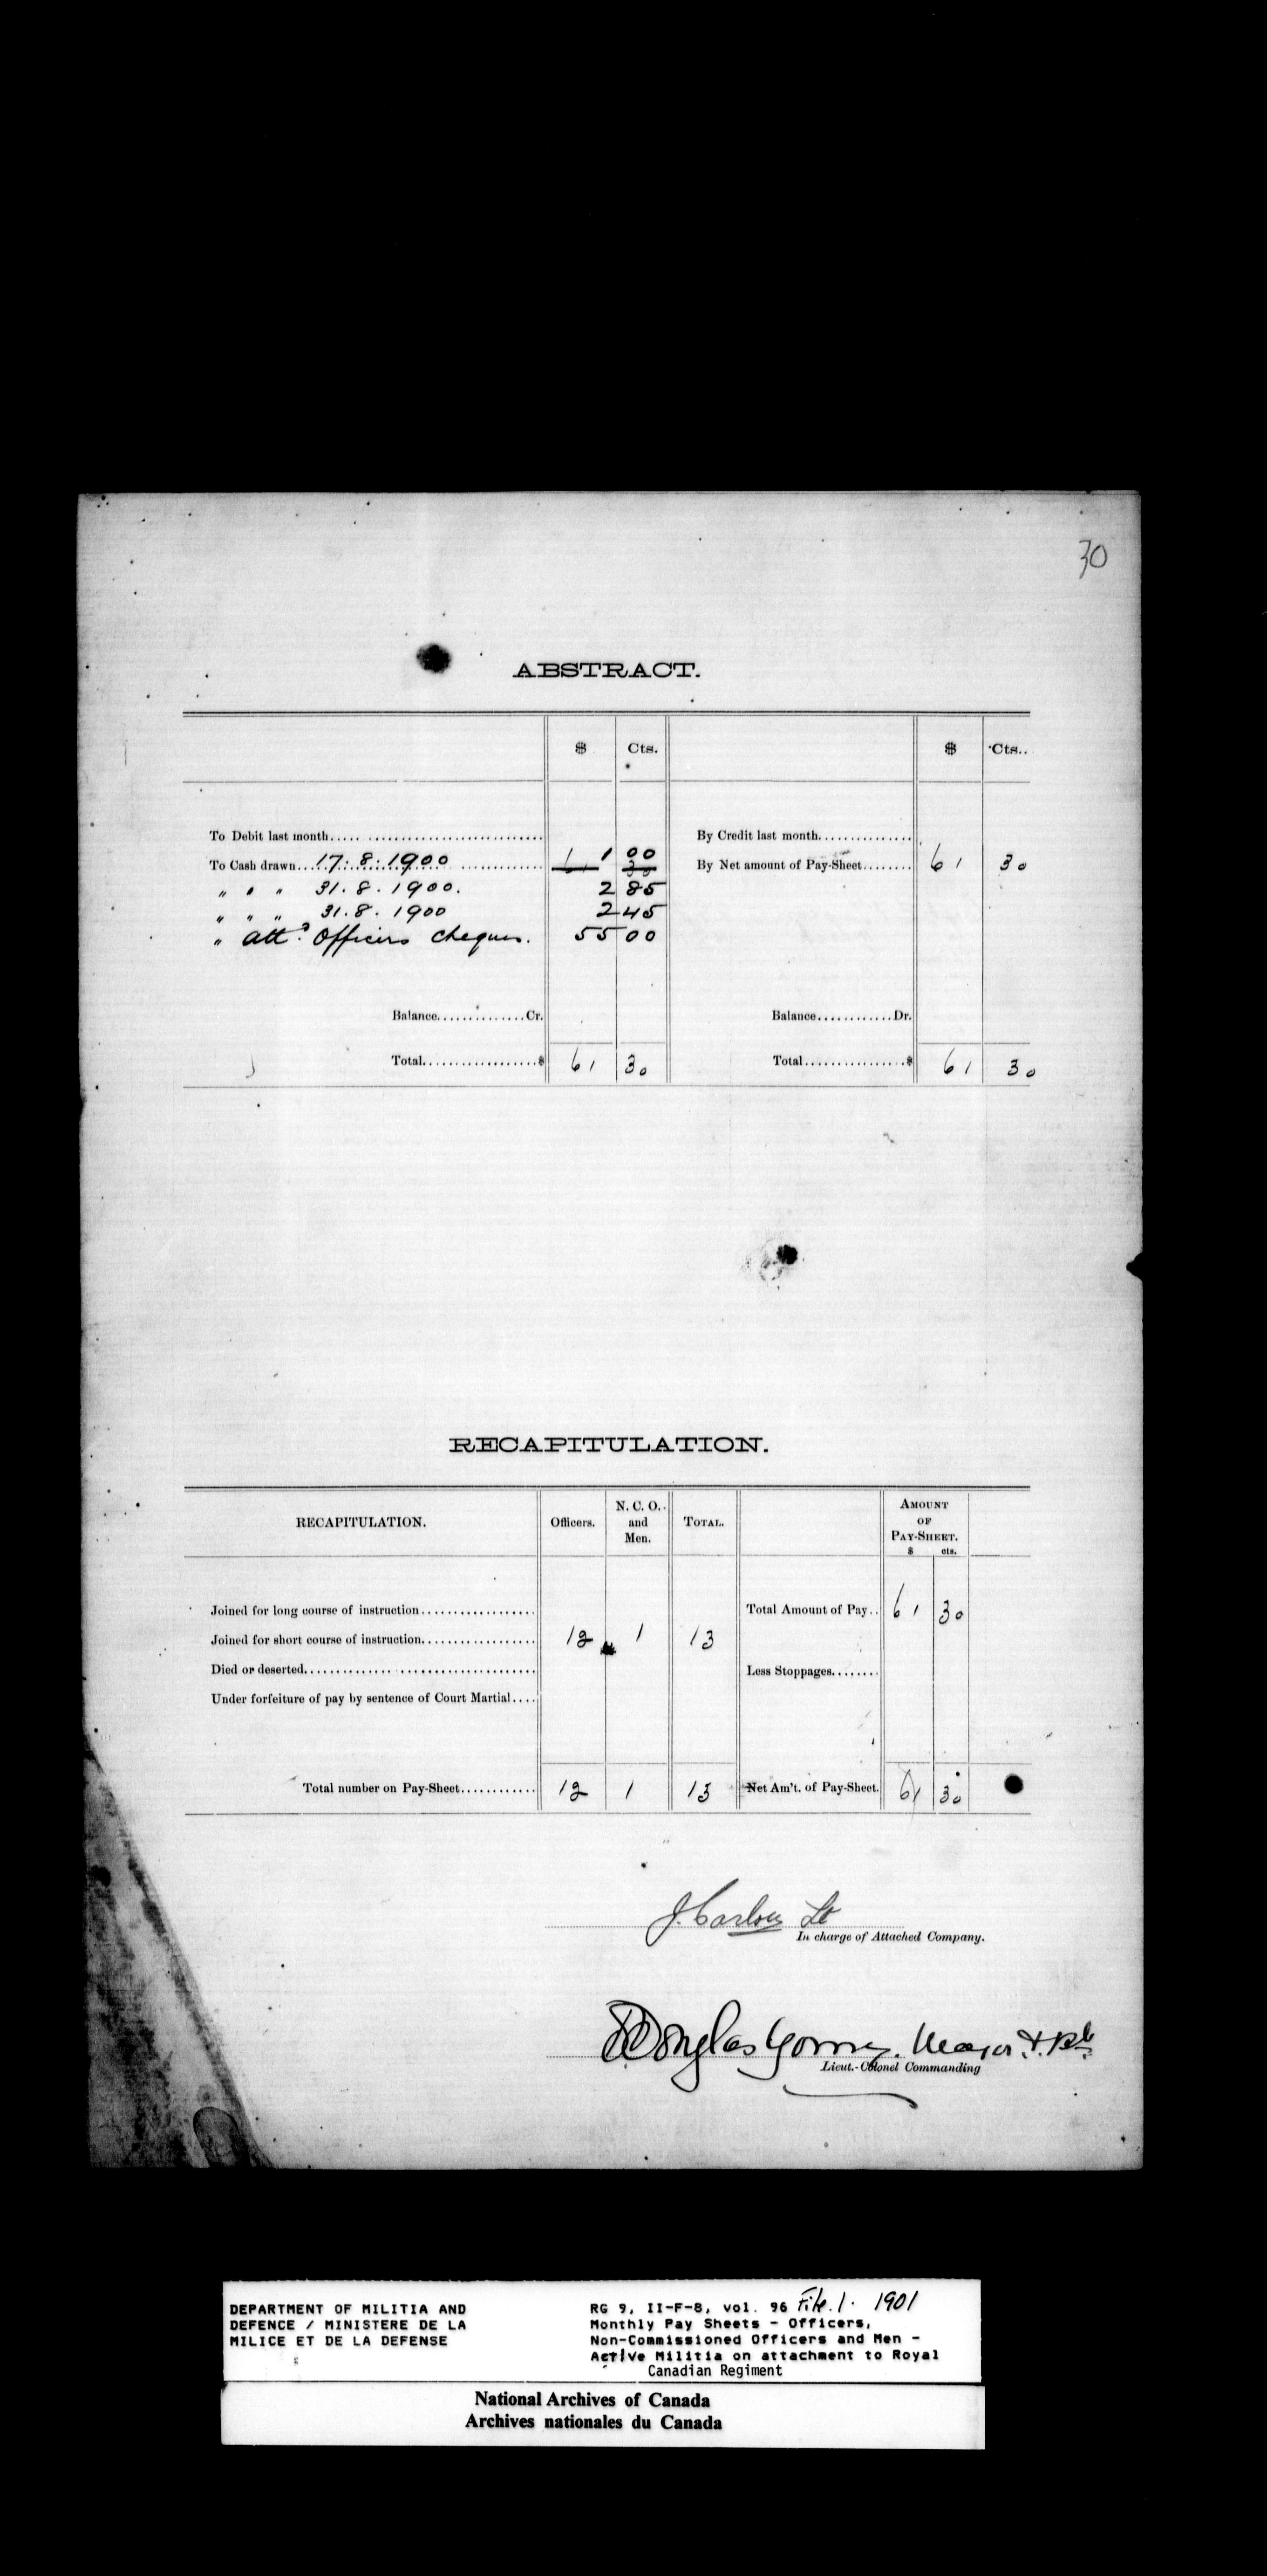 30
ABSTRACT.
$ Cts. $ Cts..
To Debit last month By Credit last month
To Cash drawn 17.8.1900 1 00 By Net amount of Pay-Sheet 61 30
61 30
" " " 31.8.1900. 2 85
" " " 31.8.1900 2 45
" attd. Officers cheques. 55 00
Balance Cr. Balance Dr.
Total $ 61 30 Total $ 61 30
RECAPITULATION.
RECAPITULATION. Officers. N. C. O. and Men. TOTAL. AMOUNT OF PAY-SHEET.
$ cts.
Joined for long course of instruction Total Amount of Pay 61 30
Joined for short course of instruction 12 1 13
Died or deserted Less Stoppages
Under forfeiture of pay by sentence of Court Martial
Total number on Pay-Sheet 12 1 13 Net Am't. of Pay-Sheet. 61 30
Lt
In charge of Attached Company.
Douglas Major
Lieut.-Colonel Commanding
DEPARTMENT OF MILITIA AND
DEFENCE / MINISTERE DE LA
MILICE ET DE LA DEFENSE
RG 9, II-F-8, vol. 96 File 1. 1901
Monthly Pay Sheets - Officers,
Non-Commissioned Officers and Men -
Active Militia on attachment to Royal
Canadian Regiment
National Archives of Canada
Archives nationales du Canada